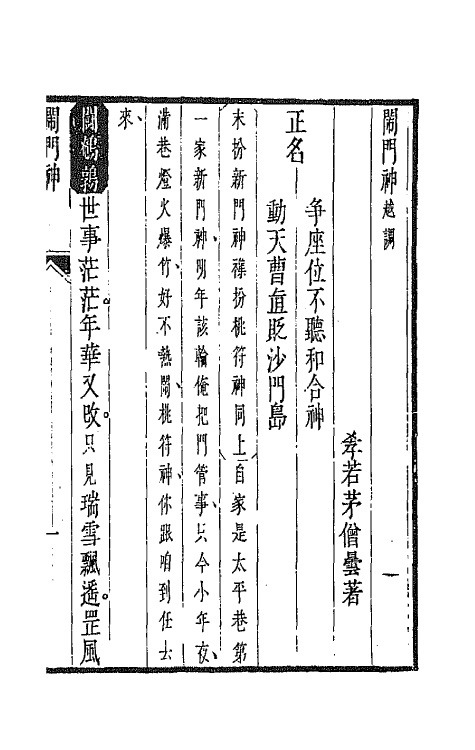 鬧門神 越調
孝若茅僧曇著
正名
争座位不聽和合神
動天曹直貶沙門島
末扮新門神襍扮桃符神同上自家是太平巷第
一家新門神明年該輪俺把門管事只今小年夜
滿巷燈火爆竹好不熱鬧桃符神你跟咱到任去
來
鬬鵪鶉 世事茫茫年華又改只見瑞雪飄遥罡風
鬧門神
一
一